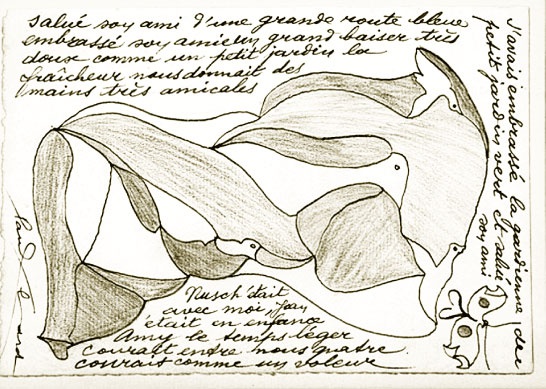 salué soy ami d'une grande route bleue
embrassé soy amieux grand baiser très
doux comme un petit jardin la
fraîcheur nous donnait des
mains très amicales
J'avais embrassé la gardienne des
petit jardin vert et salué
soy ami
Nusch était
avec moi,
était en enfance
Amy le temps léger
courait entre nous quatre
courait comme un voleur
Paul Éluard